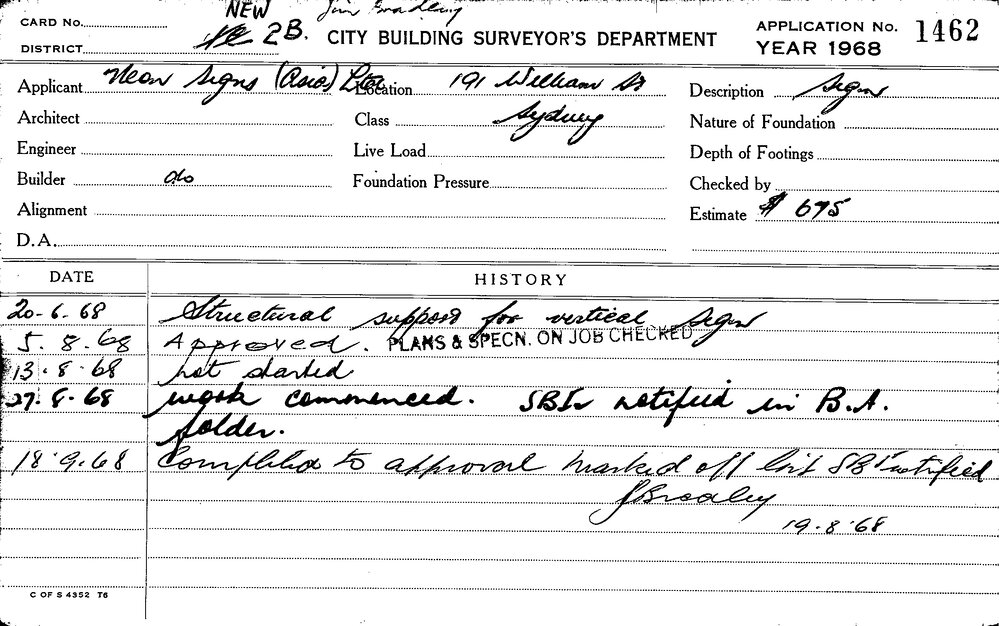 NEW Jim Bradley
CARD No. 2B. CITY BUILDING SURVEYOR'S DEPARTMENT APPLICATION No. 1462
DISTRICT YEAR 1968
Applicant Neon Signs (Asia) Ltd Location 191 William St Description Sign
Architect Class Sydney Nature of Foundation
Engineer Live Load Depth of Footings
Builder do Foundation Pressure Checked by
Alignment Estimate $ 675
D.A.
DATE HISTORY
20-6-68 Structural support for vertical sign
5.8.68 Approved. PLANS & SPECN. ON JOB CHECKED
13.8.68 not started
27.8.68 work commenced. SBI notified in B.A.
folder.
18.9.68 Completed to approval marked off list SBI notified
J Bradley
19-8-68
C OF S 4352 T6